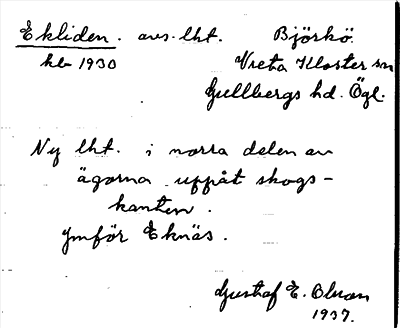 Ekliden. avs. lht. Björkö.
kb 1930 Vreta Kloster sn
Gullbergs hd. Ögl.
Ny lht. i norra delen av
ägorna uppåt skogs-
kanten.
Jmför Eknäs.
Gustaf E. Olson
1937.